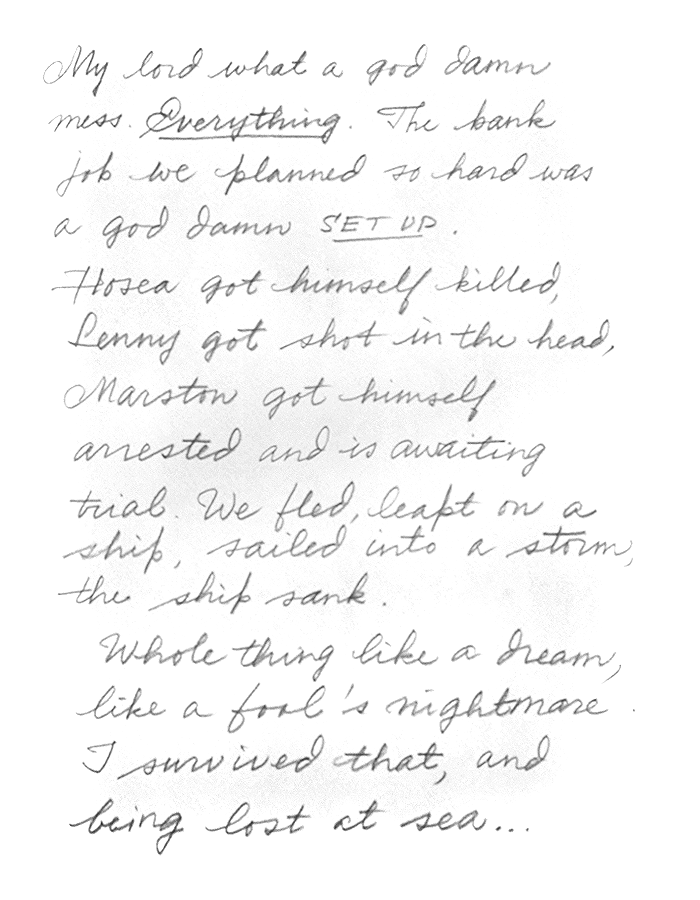 My lord what a god damn
mess. Everything. The bank
job we planned so hard was
a god damn SET UP.
Hosea got himself killed,
Lenny got shot in the head,
Marston got himself
arrested and is awaiting
trial. We fled, leapt on a
ship, sailed into a storm,
the ship sank.
Whole thing like a dream,
like a fool's nightmare.
I survived that, and
being lost at sea...